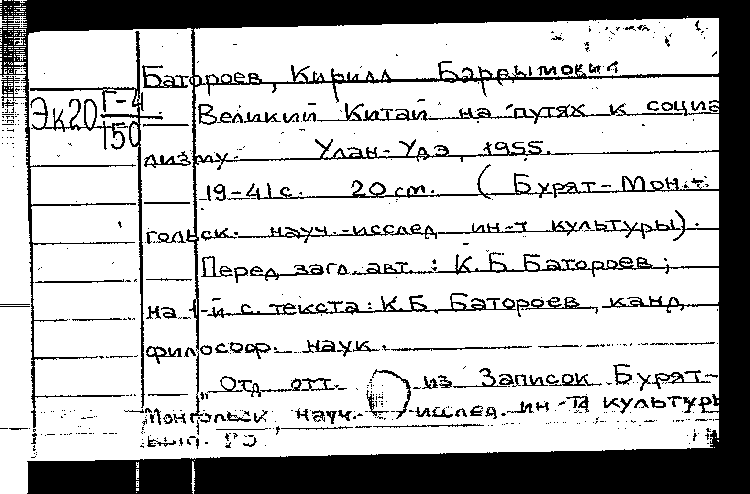 Батороев, Кирилл
Эк20 Г-4/150
Великий Китай на путях к социа
лизму. Улан-Удэ, 1955.
19-41 с. 20 cm. (Бурят-Мон-
гольск. науч.-исслед. ин-т культуры).
Перед загл. авт.: К.Б. Батороев;
на 1-й с. текста: К.Б. Батороев, канд.
философ. наук.
"Отд. отт. из Записок Бурят-
Монгольск. науч.-исслед. ин-та культуры
вып.